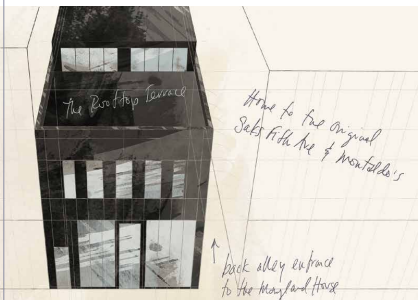 The Rooftop Terrace
Home to the Original
Saks Fifth Ave & Montaldo's
back alley entrance
to the Maryland House